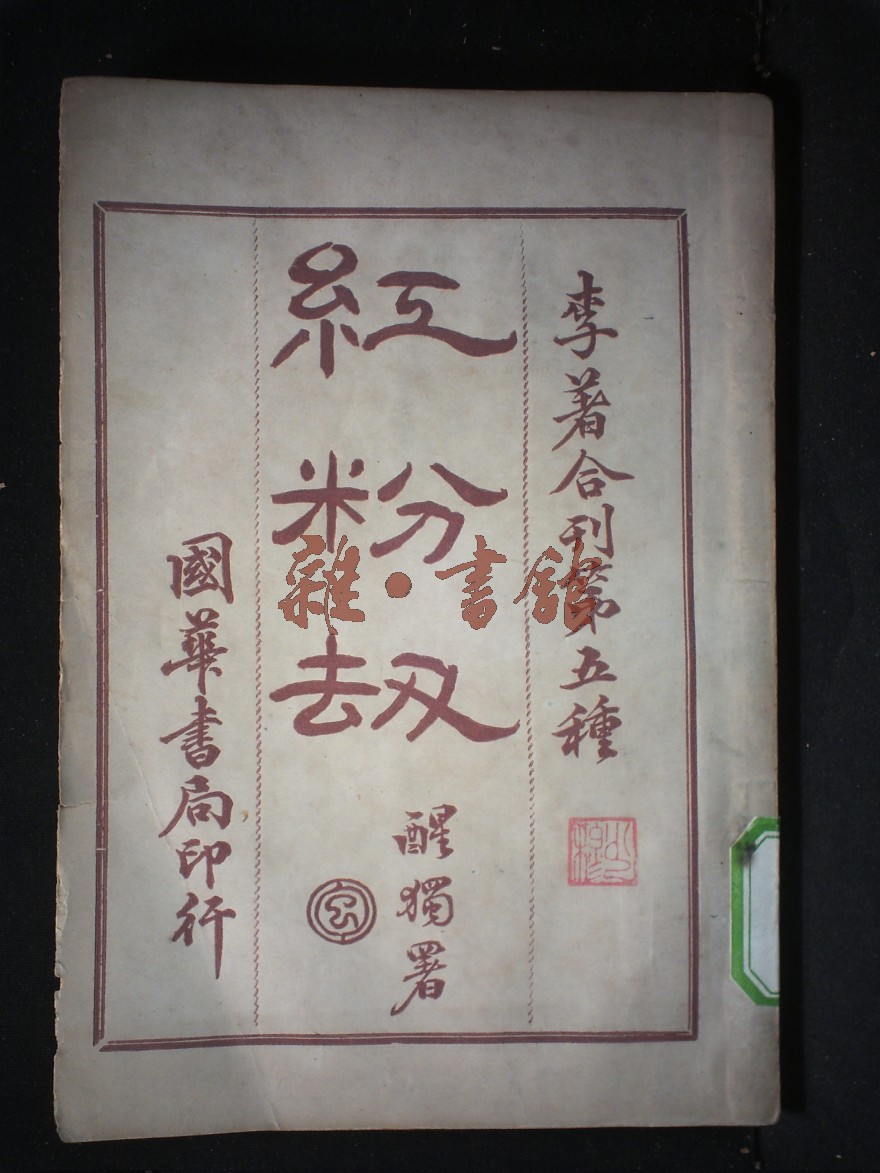 李著合刊第五種
紅粉刼
醒獨署
國華書局印行
雜·書館